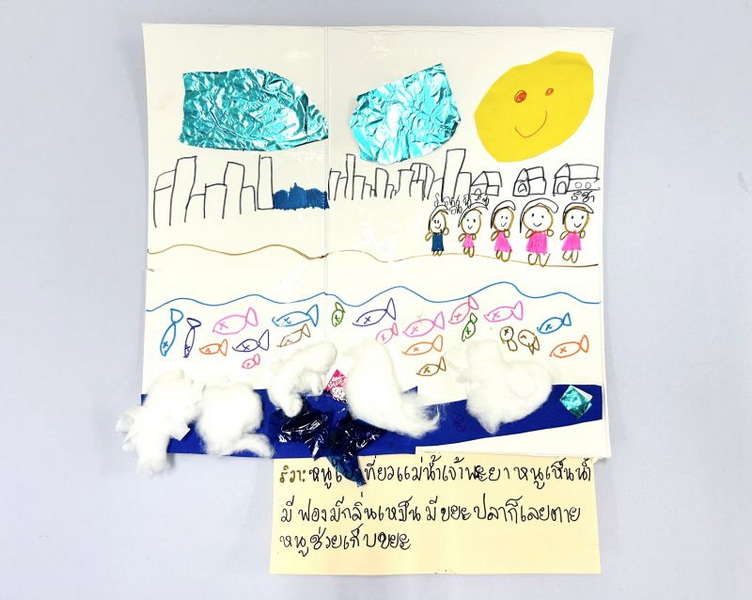 ริวา
ริวา: หนูไปเที่ยวแม่น้ำเจ้าพระยา หนูเห็นน้ำ
มีฟองมีกลิ่นเหม็น มีขยะ ปลาก็เลยตาย
หนูช่วยเก็บขยะ